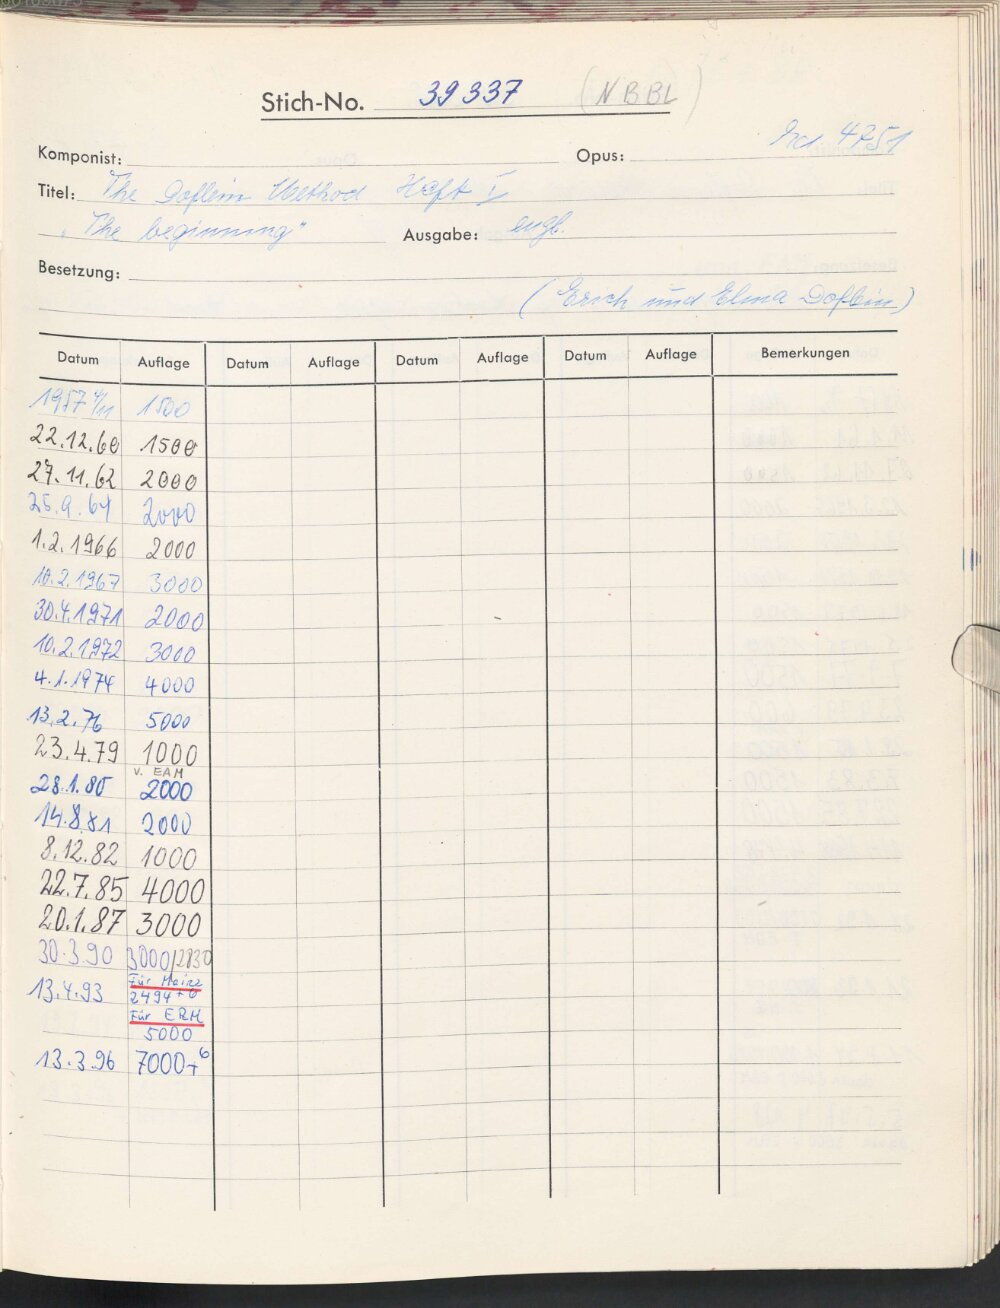 Stich-No. 39337 (NBBL)
Komponist: Opus: 4751
Titel: The Doflein Method Heft I
"The beginning" Ausgabe: engl.
Besetzung:
(Erich und Elma Doflein)
Datum Auflage Datum Auflage Datum Auflage Datum Auflage Bemerkungen
1957 4/11 1500
22.12.60 1500
27.11.62 2000
25.9.64 2000
1.2.1966 2000
10.2.1967 3000
30.4.1971 2000
10.2.1972 3000
4.1.1974 4000
13.2.76 5000
23.4.79 1000
v. EAM
28.1.80 2000
14.8.81 2000
8.12.82 1000
22.7.85 4000
20.1.87 3000
30.3.90 3000/2830
Für Mainz
13.4.93 2494+6
Für ERM
5000
13.3.96 7000+6